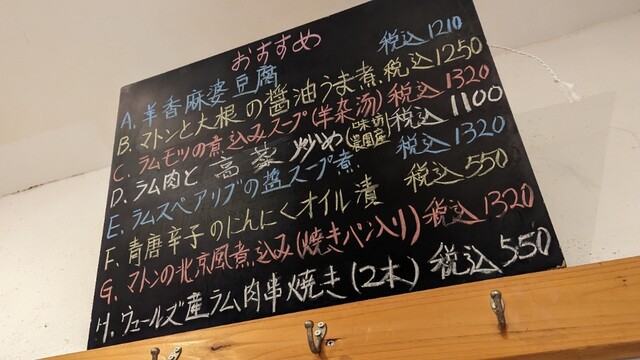 おすすめ
A. 羊香麻婆豆腐 税込1210
B. マトンと大根の醤油うま煮 税込1250
C. ラムモツの煮込みスープ(羊杂汤) 税込1320
D. ラム肉と 炒め 税込1100
E. ラムスペアリブの醤スープ煮 税込1320
F. 青唐辛子のにんにくオイル漬 税込550
G. マトンの北京風煮込み(焼きパン入り) 税込1320
H. ウェールズ産ラム肉串焼き(2本) 税込550